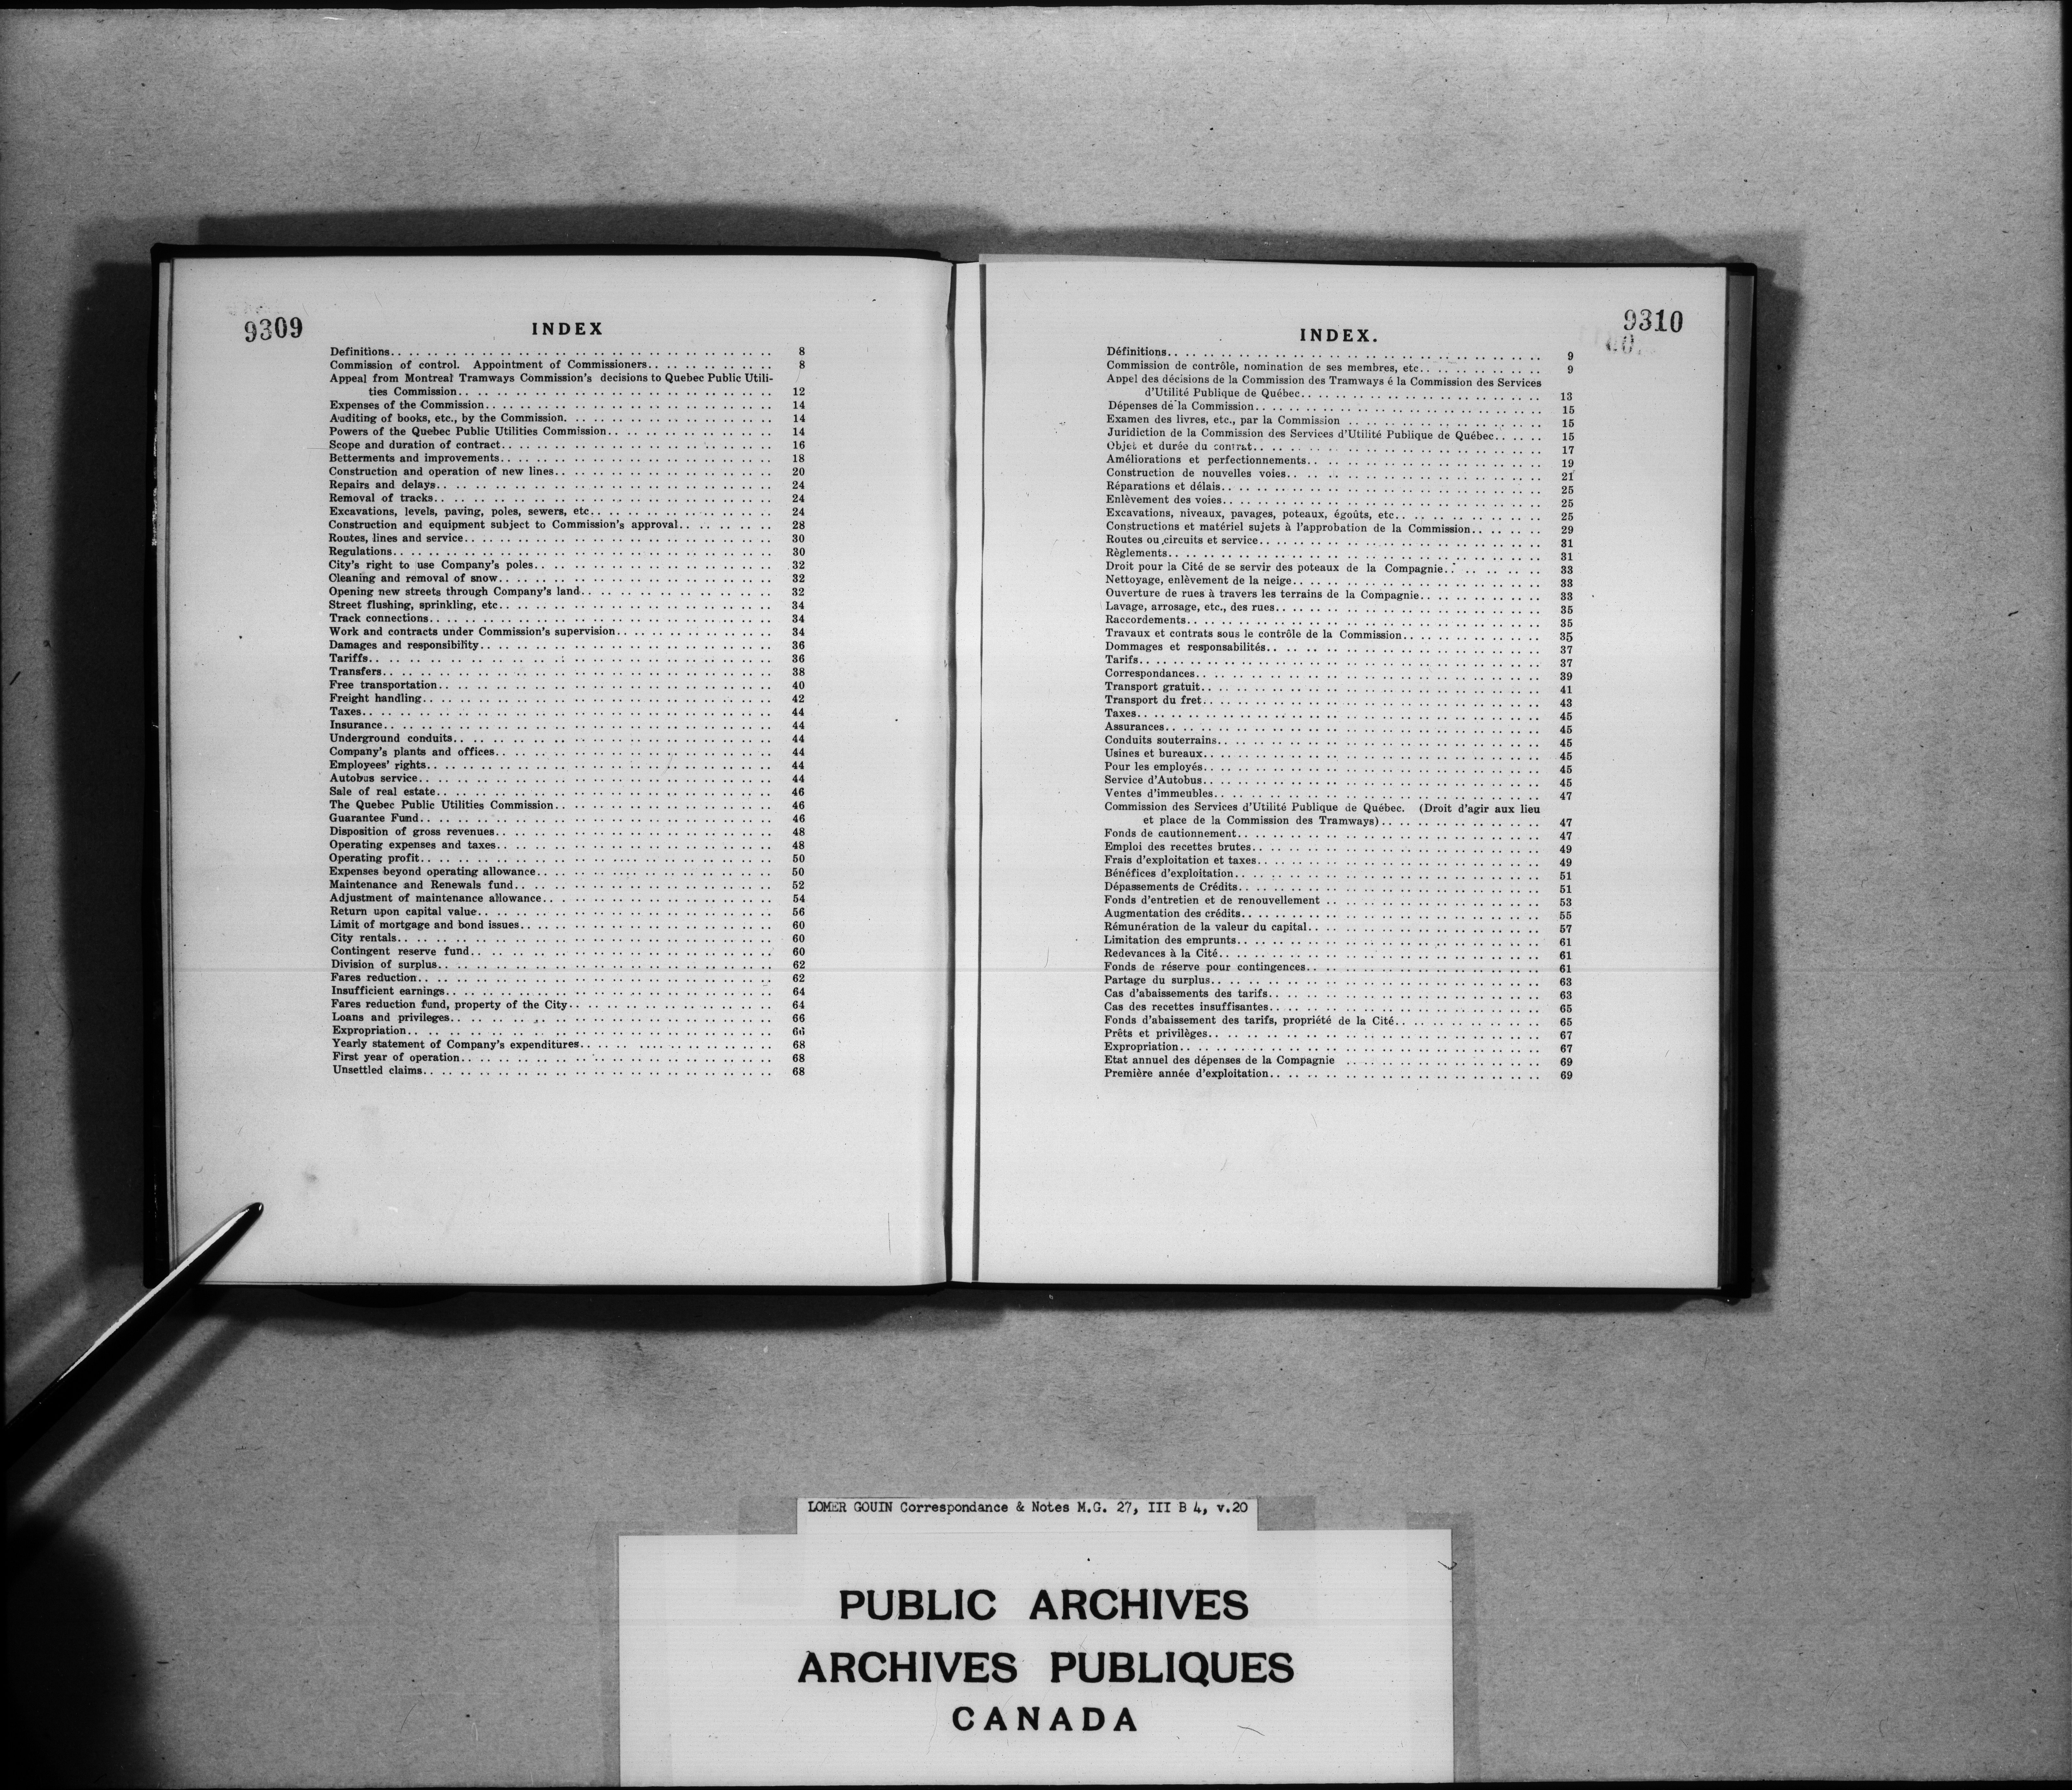 9309
INDEX
Definitions.. 8
Commission of control. Appointment of Commissioners.. 8
Appeal from Montreal Tramways Commission's decisions to Quebec Public Utili-
ties Commission.. 12
Expenses of the Commission.. 14
Auditing of books, etc., by the Commission.. 14
Powers of the Quebec Public Utilities Commission.. 14
Scope and duration of contract.. 16
Betterments and improvements.. 18
Construction and operation of new lines.. 20
Repairs and delays.. 24
Removal of tracks.. 24
Excavations, levels, paving, poles, sewers, etc.. 24
Construction and equipment subject to Commission's approval.. 28
Routes, lines and service.. 30
Regulations.. 30
City's right to use Company's poles.. 32
Cleaning and removal of snow.. 32
Opening new streets through Company's land.. 32
Street flushing, sprinkling, etc.. 34
Track connections.. 34
Work and contracts under Commission's supervision.. 34
Damages and responsibility.. 36
Tariffs.. 36
Transfers.. 38
Free transportation.. 40
Freight handling.. 42
Taxes.. 44
Insurance.. 44
Underground conduits.. 44
Company's plants and offices.. 44
Employees' rights.. 44
Autobus service.. 44
Sale of real estate.. 46
The Quebec Public Utilities Commission.. 46
Guarantee Fund.. 46
Disposition of gross revenues.. 48
Operating expenses and taxes.. 48
Operating profit.. 50
Expenses beyond operating allowance.. 50
Maintenance and Renewals fund.. 52
Adjustment of maintenance allowance.. 54
Return upon capital value.. 56
Limit of mortgage and bond issues.. 60
City rentals.. 60
Contingent reserve fund.. 60
Division of surplus.. 62
Fares reduction.. 62
Insufficient earnings.. 64
Fares reduction fund, property of the City.. 64
Loans and privileges.. 66
Expropriation.. 66
Yearly statement of Company's expenditures.. 68
First year of operation.. 68
Unsettled claims.. 68
9310
INDEX.
Définitions.. 9
Commission de contrôle, nomination de ses membres, etc.. 9
Appel des décisions de la Commission des Tramways é la Commission des Services
d'Utilité Publique de Québec.. 13
Dépenses de la Commission.. 15
Examen des livres, etc., par la Commission .. 15
Juridiction de la Commission des Services d'Utilité Publique de Québec.. 15
Objet et durée du contrat.. 17
Améliorations et perfectionnements.. 19
Construction de nouvelles voies.. 21
Réparations et délais.. 25
Enlèvement des voies.. 25
Excavations, niveaux, pavages, poteaux, égoûts, etc.. 25
Constructions et matériel sujets à l'approbation de la Commission.. 29
Routes ou circuits et service.. 31
Règlements.. 31
Droit pour la Cité de se servir des poteaux de la Compagnie.. 33
Nettoyage, enlèvement de la neige.. 33
Ouverture de rues à travers les terrains de la Compagnie.. 33
Lavage, arrosage, etc., des rues.. 35
Raccordements.. 35
Travaux et contrats sous le contrôle de la Commission.. 35
Dommages et responsabilités.. 37
Tarifs.. 37
Correspondances.. 39
Transport gratuit.. 41
Transport du fret.. 43
Taxes.. 45
Assurances.. 45
Conduits souterrains.. 45
Usines et bureaux.. 45
Pour les employés.. 45
Service d'Autobus.. 45
Ventes d'immeubles.. 47
Commission des Services d'Utilité Publique de Québec. (Droit d'agir aux lieu
et place de la Commission des Tramways).. 47
Fonds de cautionnement.. 47
Emploi des recettes brutes.. 49
Frais d'exploitation et taxes.. 49
Bénéfices d'exploitation.. 51
Dépassements de Crédits.. 51
Fonds d'entretien et de renouvellement .. 53
Augmentation des crédits.. 55
Rémunération de la valeur du capital.. 57
Limitation des emprunts.. 61
Redevances à la Cité.. 61
Fonds de réserve pour contingences.. 61
Partage du surplus.. 63
Cas d'abaissements des tarifs.. 63
Cas des recettes insuffisantes.. 65
Fonds d'abaissement des tarifs, propriété de la Cité.. 65
Prêts et privilèges.. 67
Expropriation.. 67
Etat annuel des dépenses de la Compagnie .. 69
Première année d'exploitation.. 69
LOMER GOUIN Correspondance & Notes M.G. 27, III B 4, v.20
PUBLIC ARCHIVES
ARCHIVES PUBLIQUES
CANADA